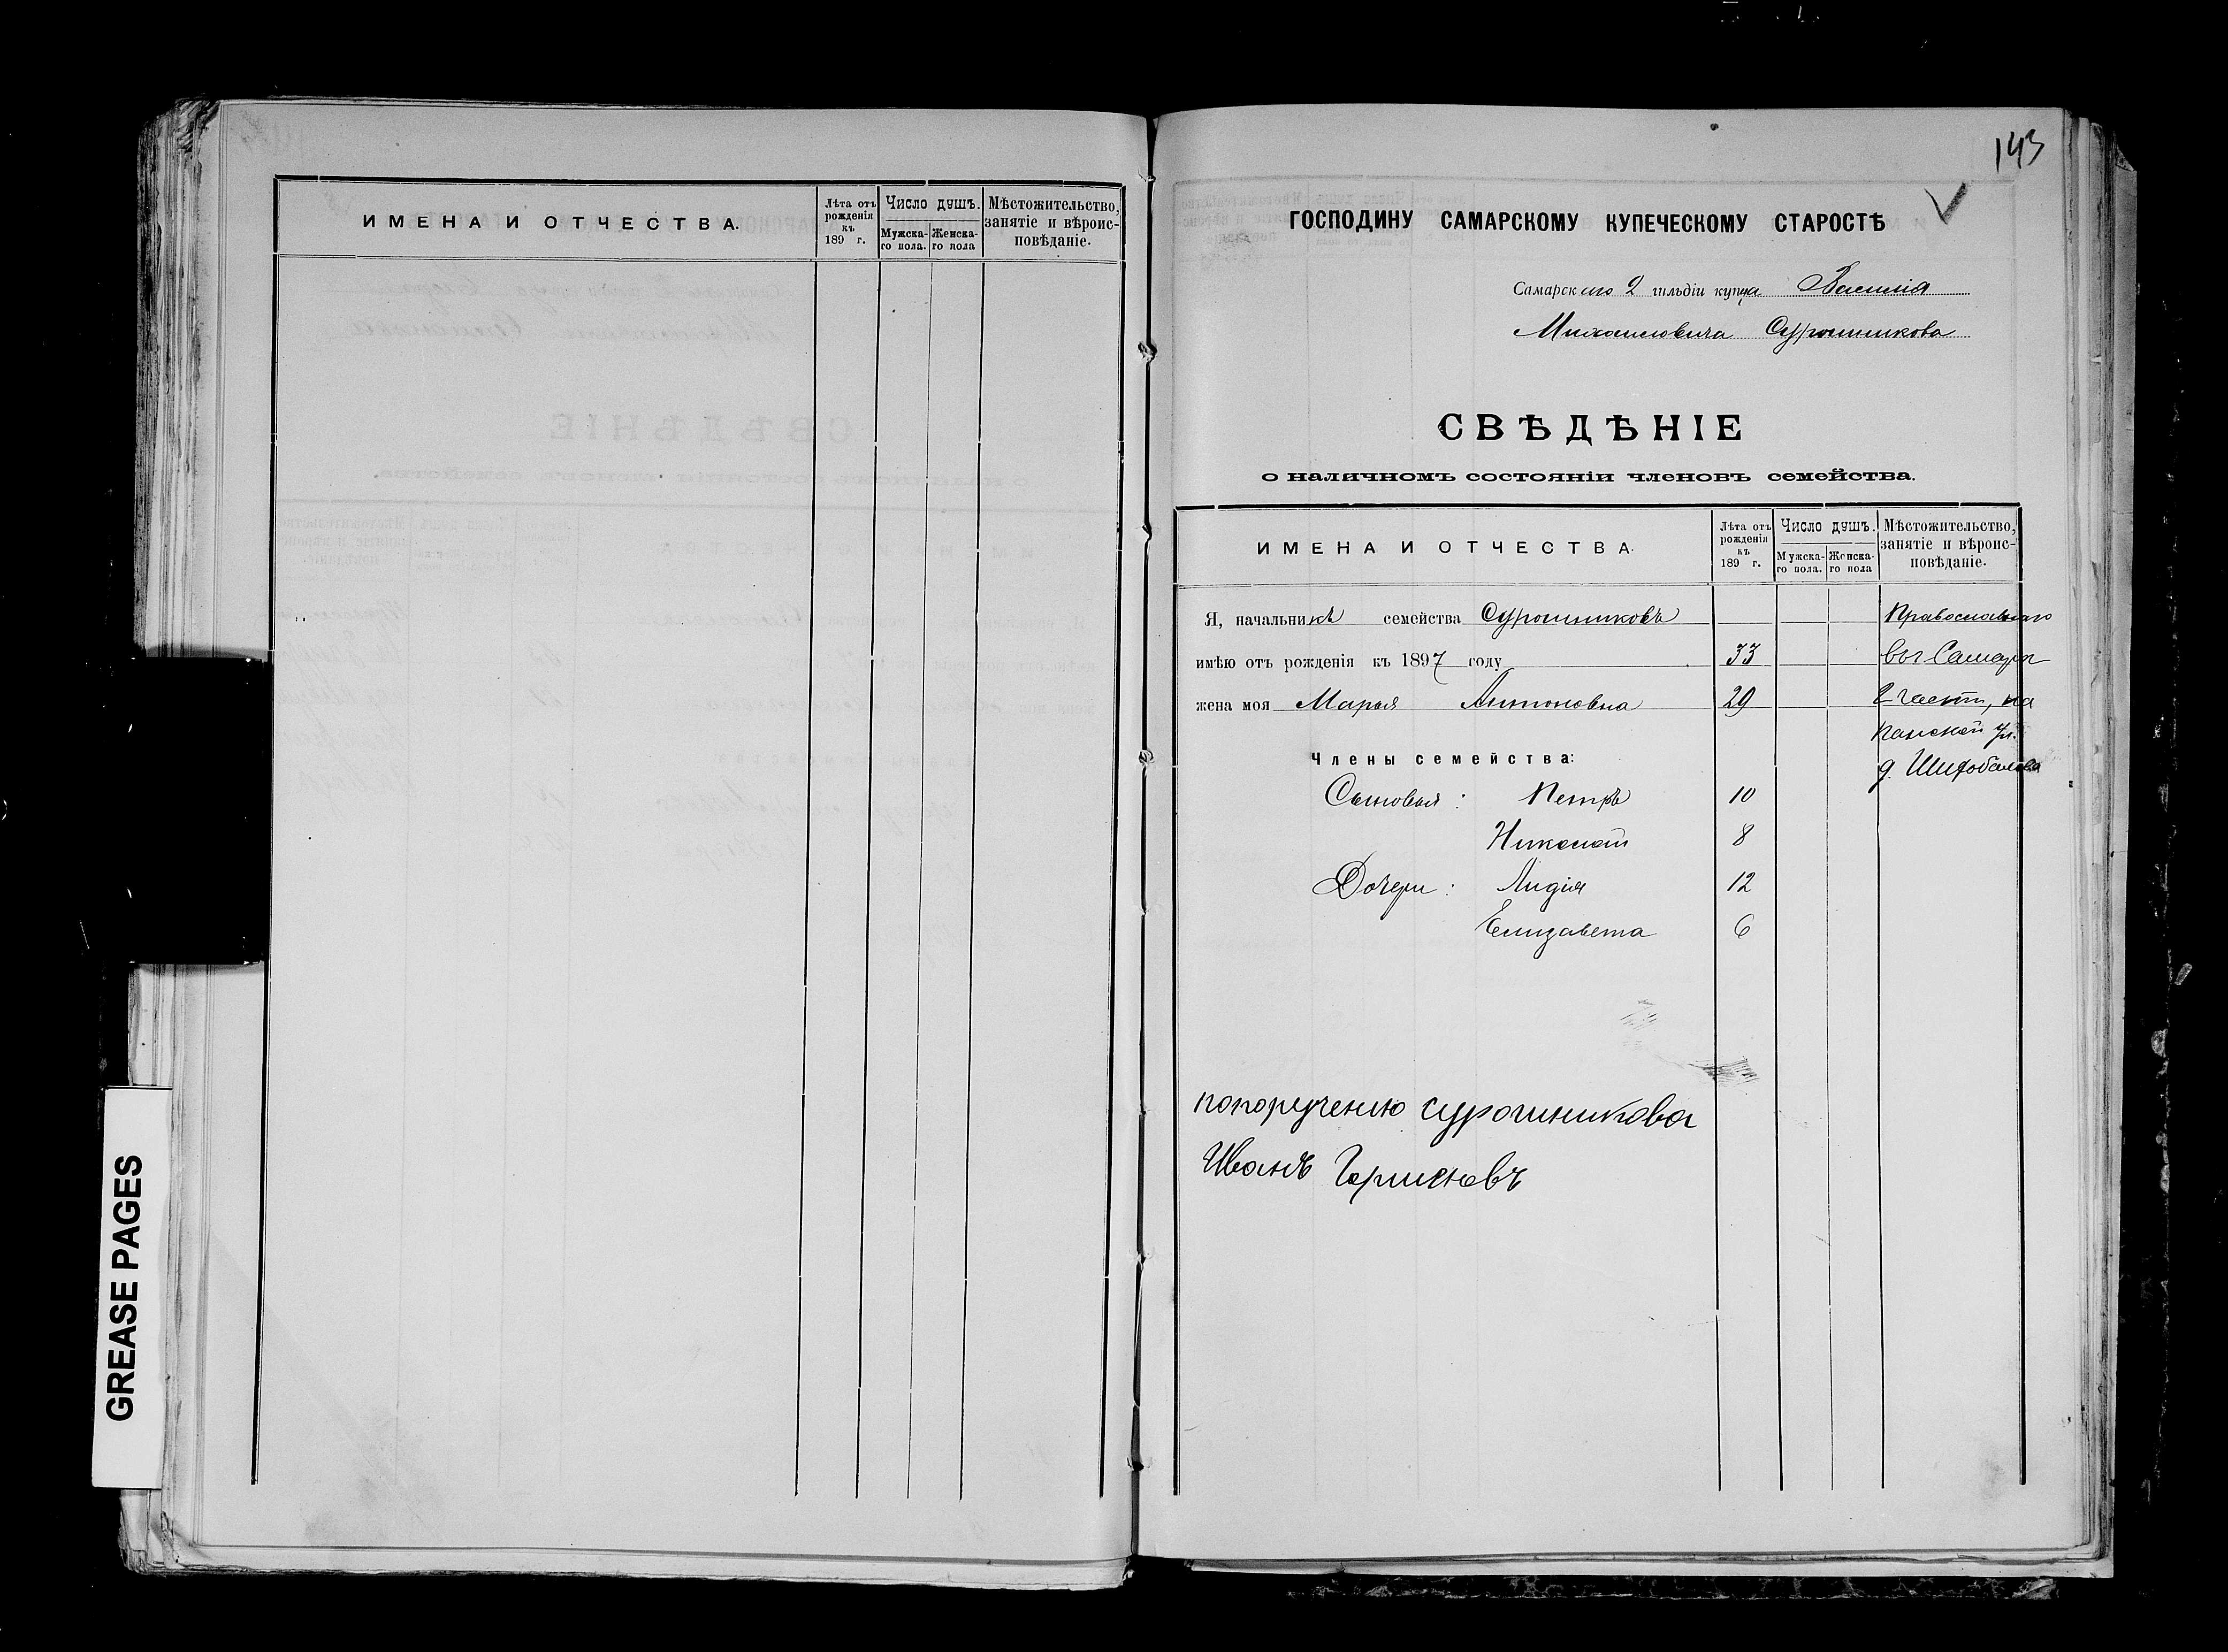 ИМЕНА И ОТЧЕСТВА.
Лѣта отъ рожденія къ 189 г.
Число душъ.
Мужска-го пола.
Женска-го пола
Мѣстожительство, занятіе и вѣроис-повѣданіе.
GREASE PAGES
143
ГОСПОДИНУ САМАРСКОМУ КУПЕЧЕСКОМУ СТАРОСТѢ
Самарскаго 2 гильдіи купца Василія
Михайловича Сурошникова
СВѢДѢНІЕ
о наличномъ состояніи членовъ семейства.
ИМЕНА И ОТЧЕСТВА.
Лѣта отъ рожденія къ 189 г.
Число душъ.
Мужска-го пола.
Женска-го пола
Мѣстожительство, занятіе и вѣроис-повѣданіе.
Я, начальникъ семейства Сурошниковъ Православнаго
имѣю отъ рожденія къ 1897 году 33 въ г. Самара
жена моя Марья Антоновна 29 2 части, на
Панской ул.
Члены семейства: д. Шихобалова
Сыновья: Петръ 10
Николай 8
Дочери: Лидія 12
Елизавета 6
попорученію Сурошникова
Иванъ